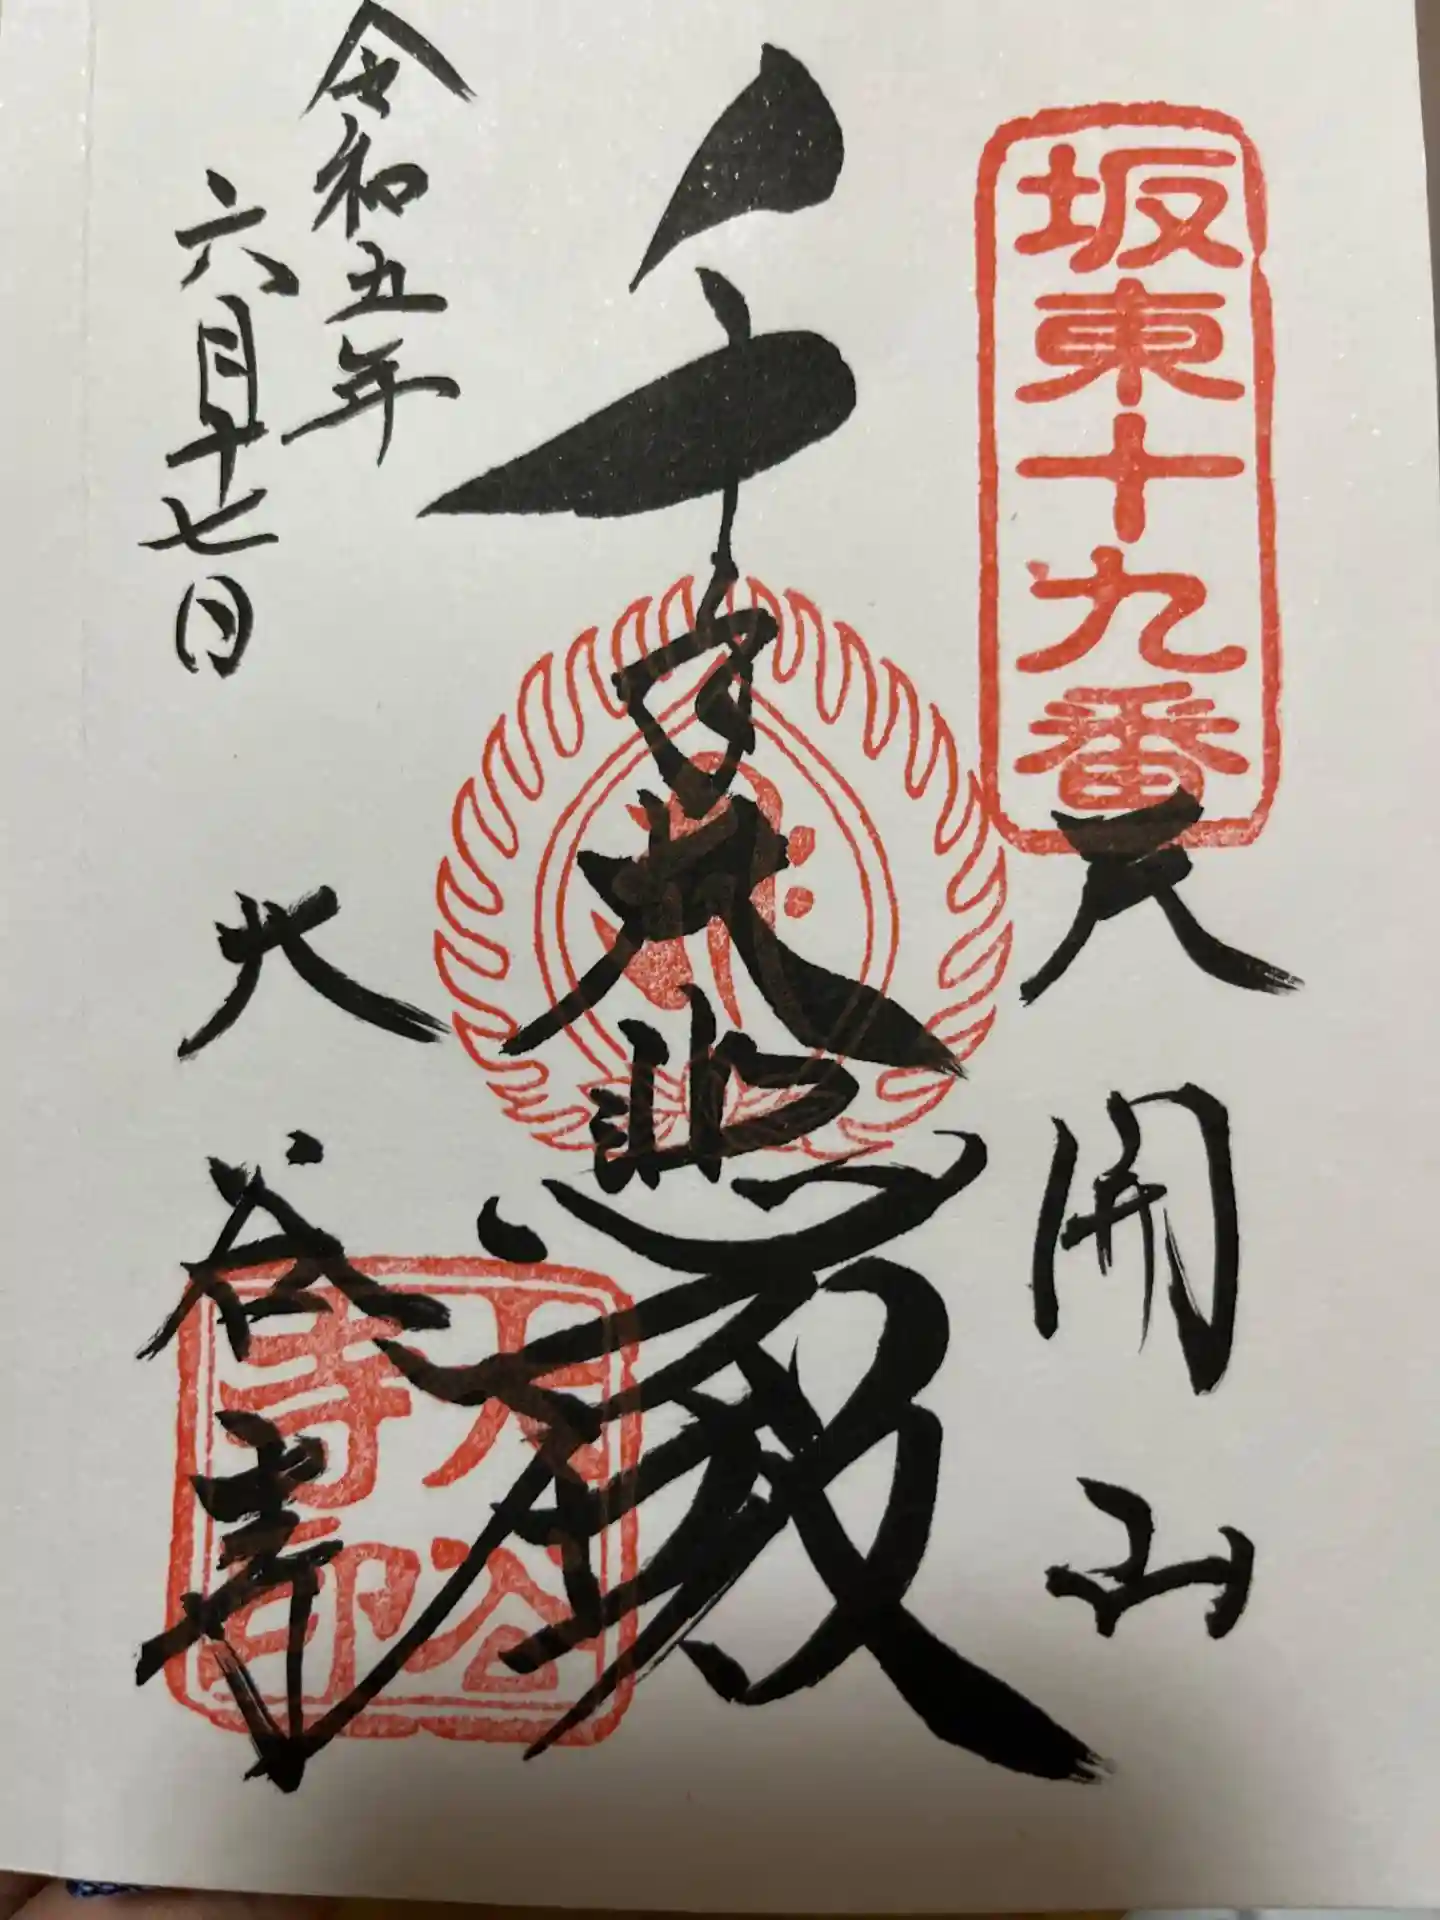 坂東十九番
天開山
千手大悲殿
令和五年
六月十七日
大谷寺
大谷
寺印